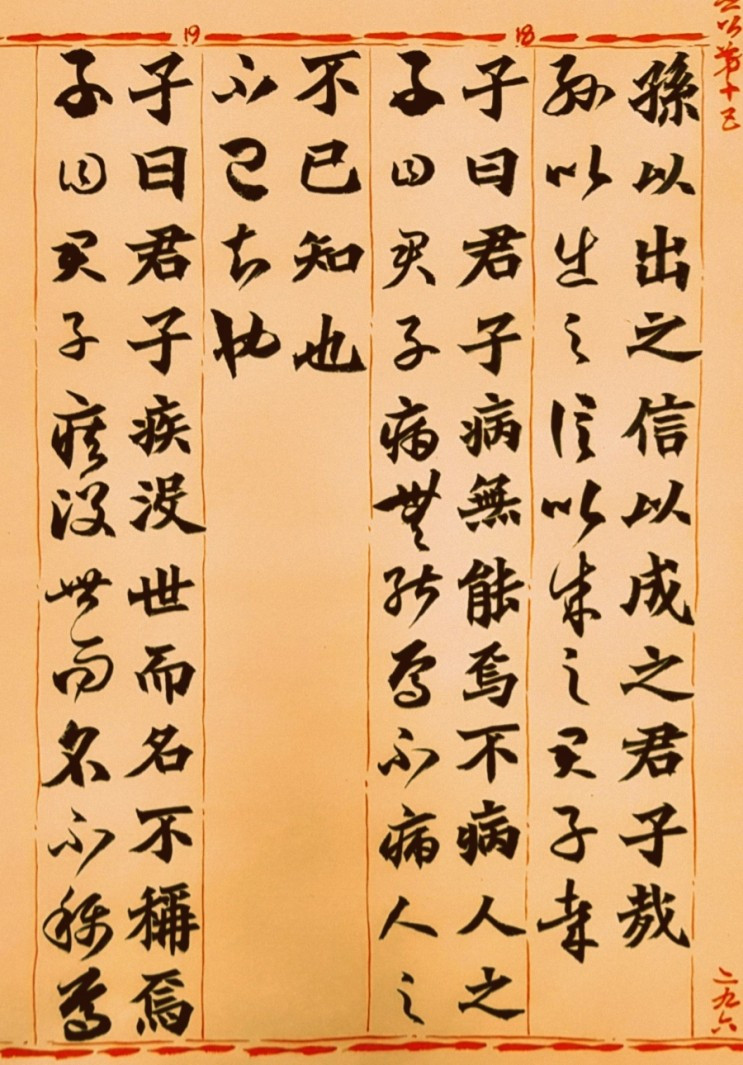 公第十五
孫以出之信以成之君子哉
孫以出之信以成之君子哉
18
子曰君子病無能焉不病人之
子曰君子病無能焉不病人之
不已知也
不已知也
19
子曰君子疾没世而名不稱焉
子曰君子疾没世而名不稱焉
二九六